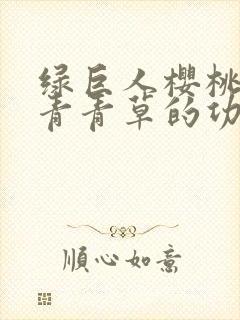 绿巨人樱桃
青青草的功
順心如意